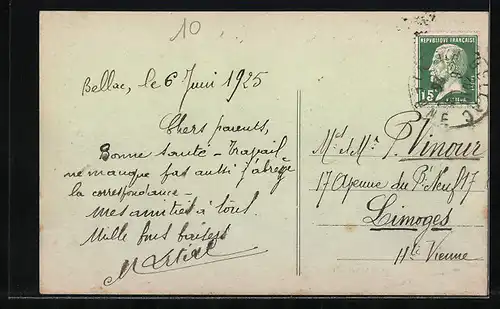 10
Bellac, le 6 Juin 1925
Chers parents,
Bonne santé - Travail
ne manque pas aussi j'abrège
la correspondance -
Mes amitiés à tous.
Mille fons baisers
REPUBLIQUE FRANÇAISE
15c
Mr et Me P. Vinour
17 Avenue du Pt Neuf 17
Limoges
Hte Vienne